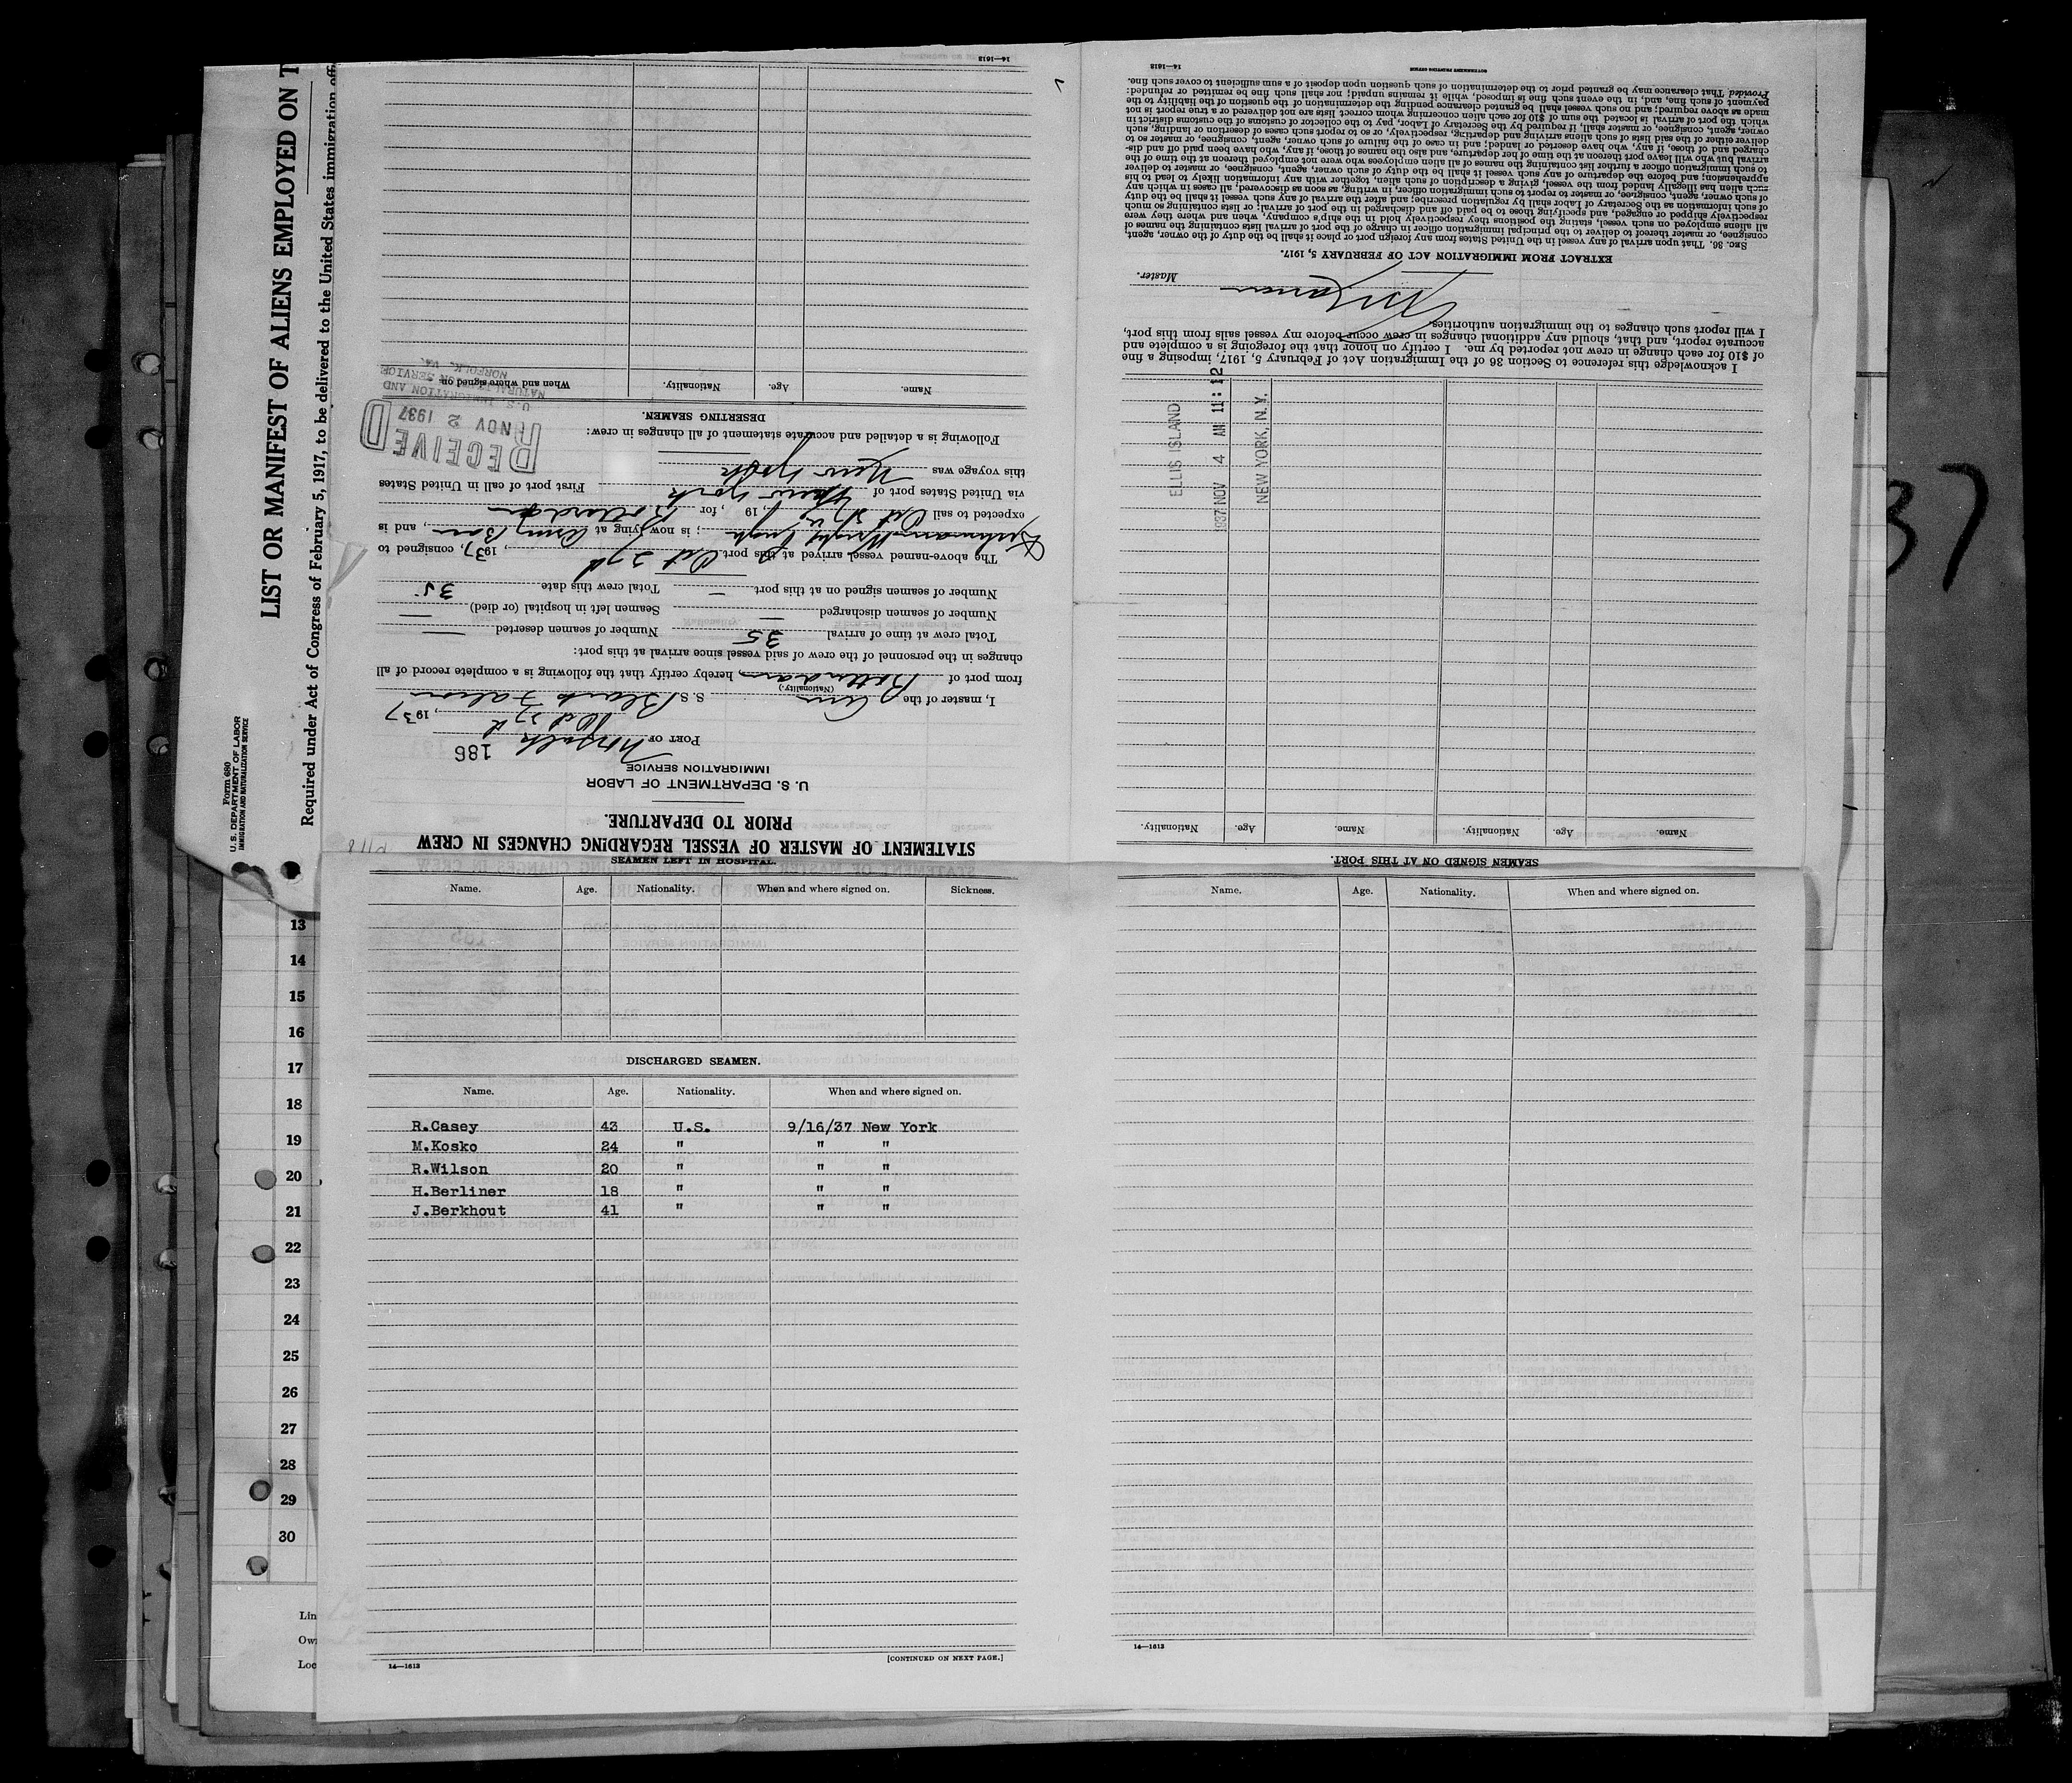 LIST OR MANIFEST OF ALIENS EMPLOYED ON T
Required under Act of Congress of February 5, 1917, to be delivered to the United States immigration offi
Form 680
U. S. DEPARTMENT OF LABOR
IMMIGRATION AND NATURALIZATION SERVICE
STATEMENT OF MASTER OF VESSEL REGARDING CHANGES IN CREW
PRIOR TO DEPARTURE.
U. S. DEPARTMENT OF LABOR
IMMIGRATION SERVICE
186
PORT OF Norfolk
Oct 27, 1937
I, master of the Am S. S. Black Falcon
(Nationality)
from port of Rotterdam, hereby certify that the following is a complete record of all
changes in the personnel of the crew of said vessel since arrival at this port:
Total crew at time of arrival 35 Number of seamen deserted —
Number of seamen discharged — Seamen left in hospital (or died) —
Number of seamen signed on at this port — Total crew this date 35
The above-named vessel arrived at this port Oct 27, 1937, consigned to
; is now lying at Army Base, and is
expected to sail Oct, 19 , for Rotterdam
via United States port of New York First port of call in United States
this voyage was New York
Following is a detailed and accurate statement of all changes in crew:
RECEIVED
NOV 2 1937
U. S. IMMIGRATION AND
NATURALIZATION SERVICE
NORFOLK, VA.
DESERTING SEAMEN.
Name. Age. Nationality. When and where signed on.
14—1613
SEAMEN SIGNED ON AT THIS PORT.
Name. Age. Nationality. Name. Age. Nationality.
ELLIS ISLAND
1937 NOV 4 AM 11:12
NEW YORK, N. Y.
I acknowledge this reference to Section 36 of the Immigration Act of February 5, 1917, imposing a fine
of $10 for each change in crew not reported by me. I certify on honor that the foregoing is a complete and
accurate report, and that, should any additional changes in crew occur before my vessel sails from this port,
I will report such changes to the immigration authorities.
Master.
EXTRACT FROM IMMIGRATION ACT OF FEBRUARY 5, 1917.
SEC. 36. That upon arrival of any vessel in the United States from any foreign port or place it shall be the duty of the owner, agent,
consignee, or master thereof to deliver to the principal immigration officer in charge of the port of arrival lists containing the names of
all aliens employed on such vessel, stating the positions they respectively hold in the ship's company, when and where they were
respectively shipped or engaged, and specifying those to be paid off and discharged in the port of arrival; or lists containing so much
of such information as the Secretary of Labor shall by regulation prescribe; and after the arrival of any such vessel it shall be the duty
of such owner, agent, consignee, or master to report to such immigration officer, in writing, as soon as discovered, all cases in which any
such alien has illegally landed from the vessel, giving a description of such alien, together with any information likely to lead to his
apprehension; and before the departure of any such vessel it shall be the duty of such owner, agent, consignee, or master to deliver
to such immigration officer a further list containing the names of all alien employees who were not employed thereon at the time of the
arrival but who will leave port thereon at the time of her departure, and also the names of those, if any, who have been paid off and dis-
charged and of those, if any, who have deserted or landed; and in case of the failure of such owner, agent, consignee, or master so to
deliver either of the said lists of such aliens arriving and departing, respectively, or so to report such cases of desertion or landing, such
owner, agent, consignee, or master shall, if required by the Secretary of Labor, pay to the collector of customs of the customs district in
which the port of arrival is located the sum of $10 for each alien concerning whom correct lists are not delivered or a true report is not
made as above required; and no such vessel shall be granted clearance pending the determination of the question of the liability to the
payment of such fine, and, in the event such fine is imposed, while it remains unpaid; nor shall such fine be remitted or refunded:
Provided That clearance may be granted prior to the determination of such question upon deposit of a sum sufficient to cover such fine.
GOVERNMENT PRINTING OFFICE
14—1613
37
SEAMEN LEFT IN HOSPITAL.
Name. Age. Nationality. When and where signed on. Sickness.
DISCHARGED SEAMEN.
Name. Age. Nationality. When and where signed on.
R.Casey 43 U.S. 9/16/37 New York
M.Kosko 24 " " "
R.Wilson 20 " " "
H.Berliner 18 " " "
J.Berkhout 41 " " "
[CONTINUED ON NEXT PAGE.]
14—1613
Name. Age. Nationality. When and where signed on.
14—1613
13
14
15
16
17
18
19
20
21
22
23
24
25
26
27
28
29
30
Lin
Own
Loc